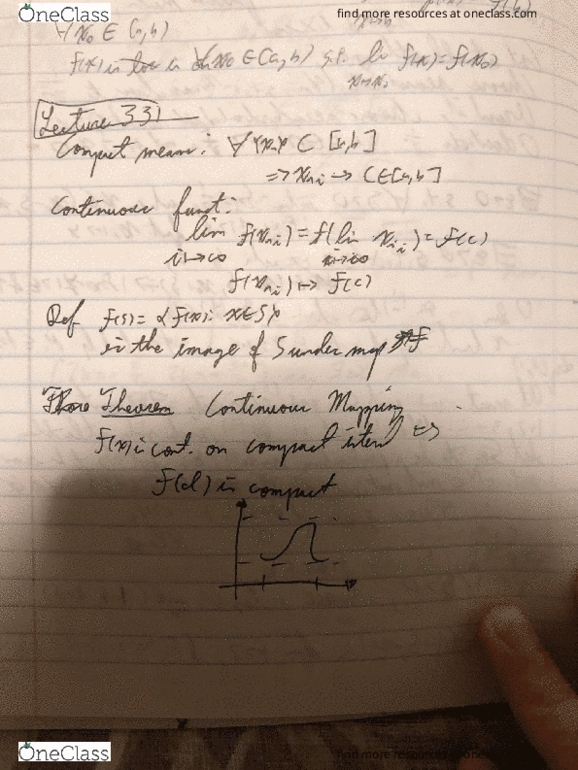 OneClass
find more resources at oneclass.com
∀x₀ ∈ (a,b)
f(x) is ∀x₀ ∈ (a,b) s.t. li f(x)=f(x₀)
x→x₀
Lecture 331
Compact means: ∀{xₙ} ⊂ [a,b]
=> xₙᵢ → C∈[a,b]
Continuous funct:
lim f(xₙᵢ)=f(lim xₙᵢ)=f(c)
i→∞ i→∞
f(xₙᵢ) → f(c)
Def f(s)= {f(x): x∈S}
is the image of S under map f
Theorem Continuous Mapping
f(x) is cont. on compact =>
f(d) is compact
OneClass
find more resources at oneclass.com